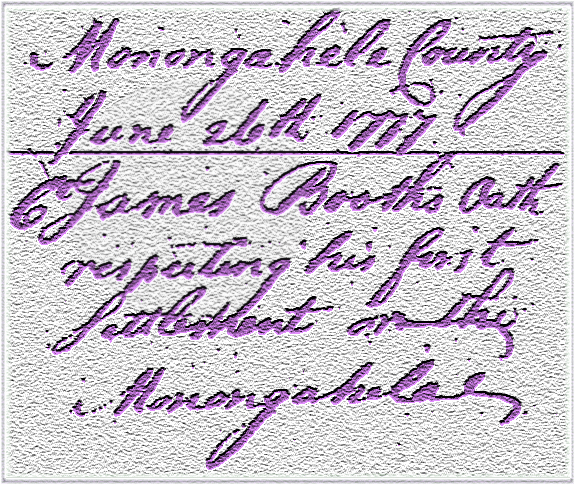 Monongahela County
June 26th 1777
James Booths Oath
respecting his first
Settlement on the
Monongahela